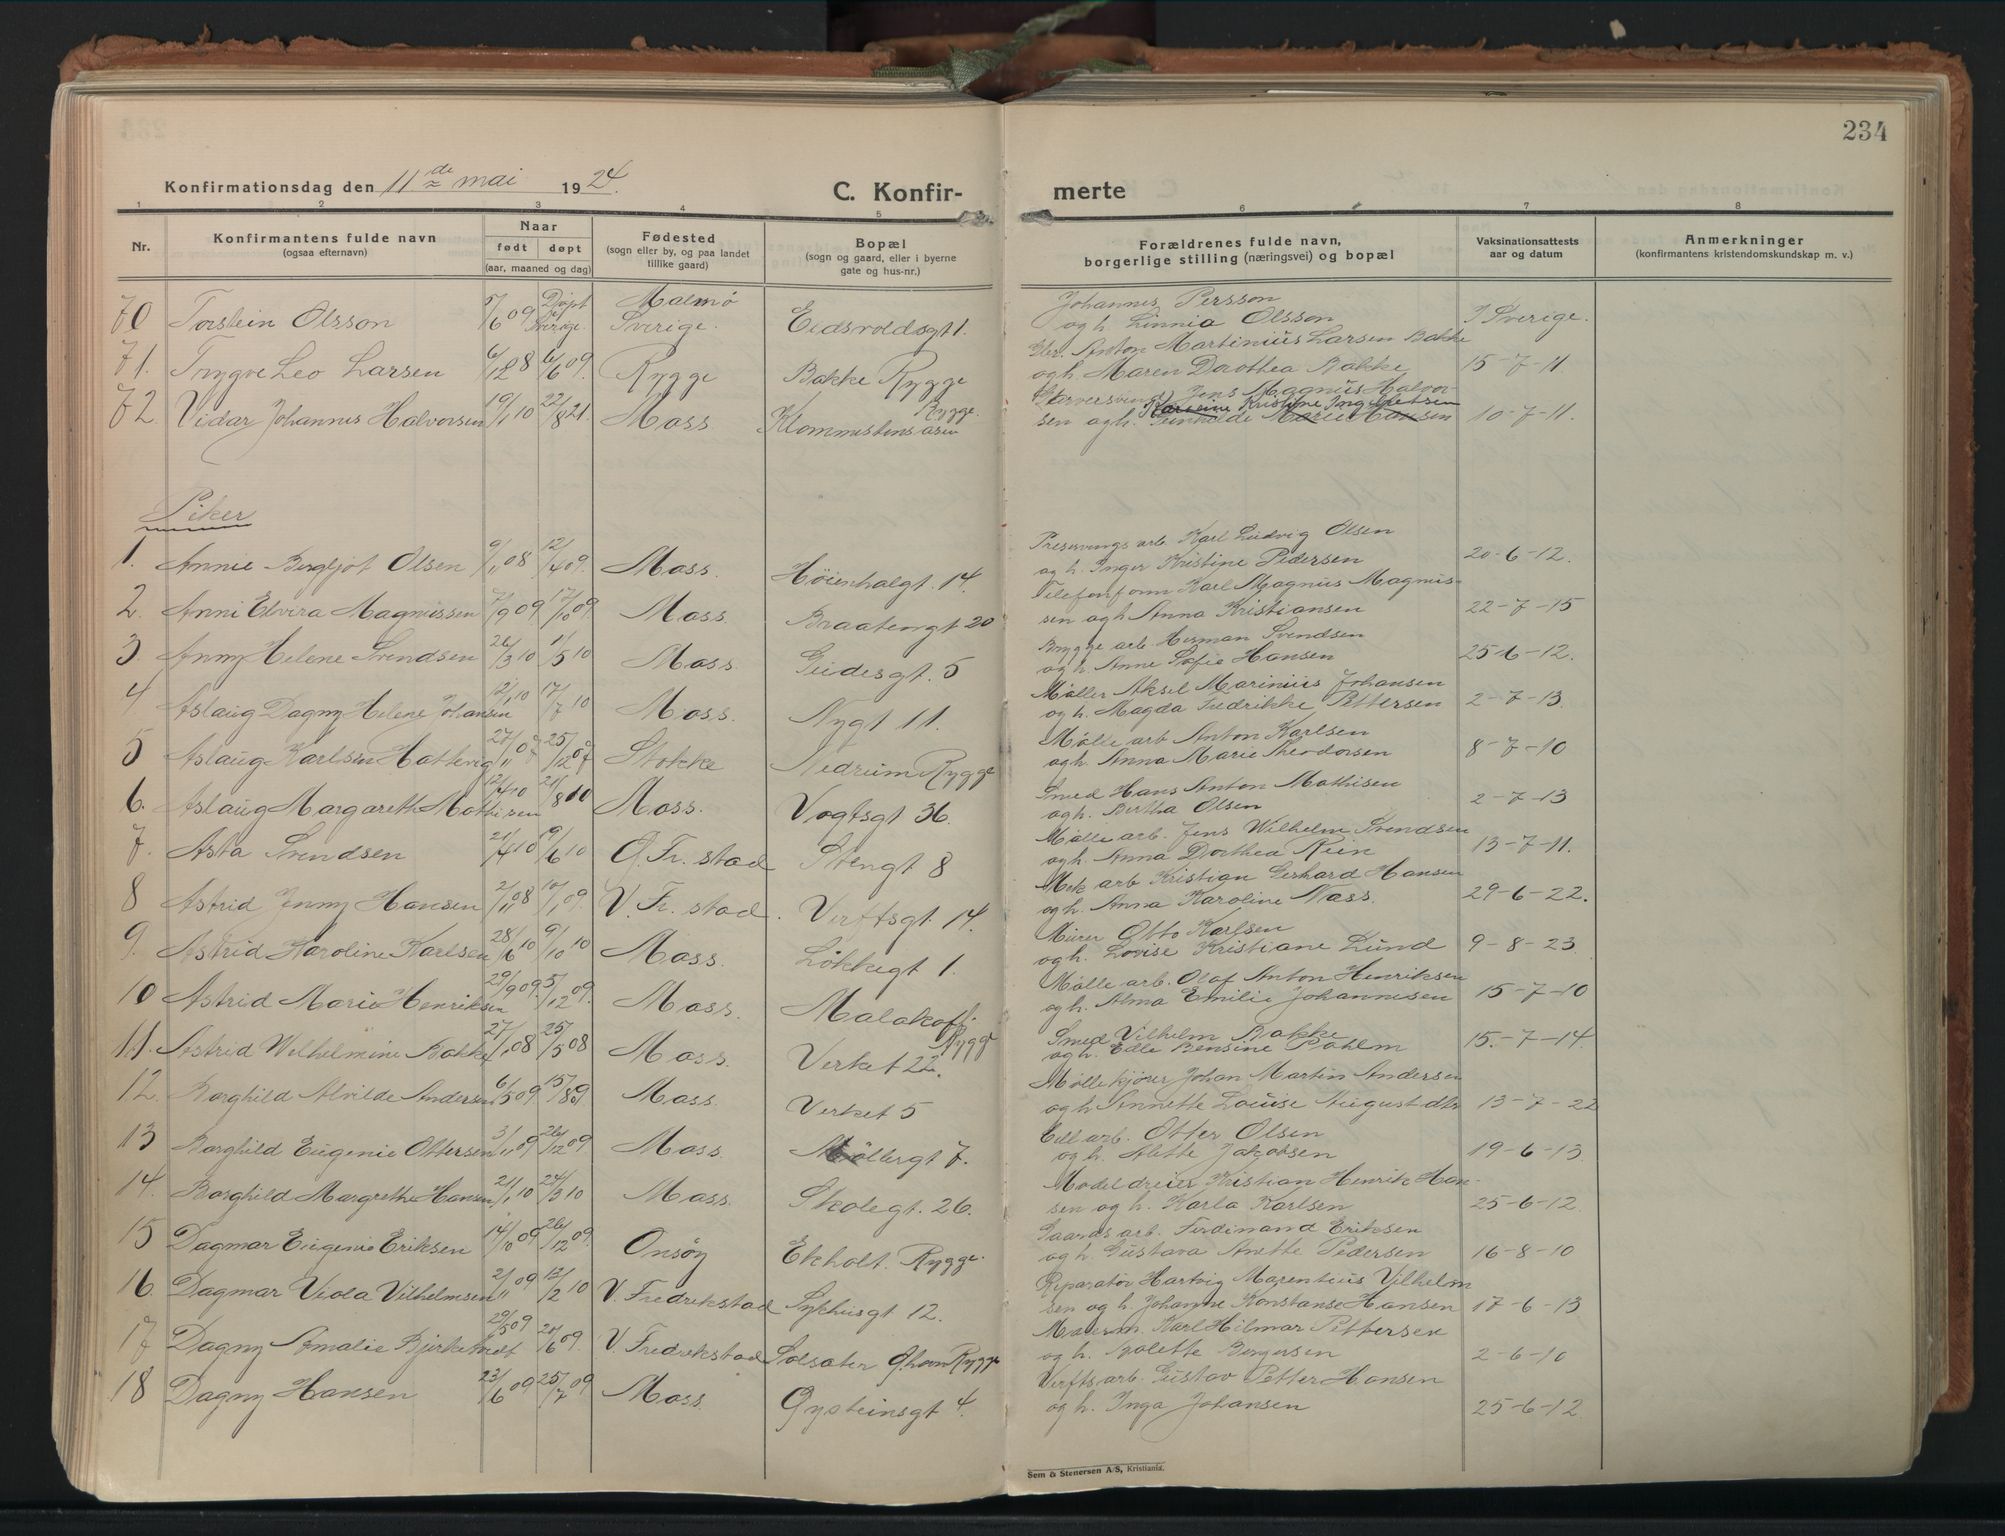 234
Konfirmationsdag den 11 de mai 1924.
C. Konfir- merte
1 2 3 4 5 6 7 8
Nr.
Konfirmantens fulde navn
(ogsaa efternavn)
Naar
født døpt
(aar, maaned og dag)
Fødested
(sogn eller by, og paa landet
tillike gaard)
Bopæl
(sogn og gaard, eller i byerne
gate og hus-nr.)
Forældrenes fulde navn,
borgerlige stilling (næringsvei) og bopæl
Vaksinationsattests
aar og datum
Anmerkninger
(konfirmantens kristendomskundskap m. v.)
70 Torstein Olsson 5/6 09 Døpt i Sverige. Malmø Sverige. Eidsvoldsgt 1. Johannes Persson
og h. Linnia Olsson I Sverige.
71. Trygve Leo Larsen 6/12 08 6/6 09. Rygge Bakke Rygge Anton Martinius Larsen Bakke
og h. Maren Dorothea Bakke 15-7-11
72. Vidar Johannes Halvorsen 19/1 10 22/8 21. Moss Rygge. Jens Magnus Halvor-
sen og h. Karoline Kristine Ingebretsen Marie Hansen 10-7-11.
Piker
1. Annie Bergljot Olsen 9/11 08 12/4 09. Moss. Høienhalgt. 14. Preservings arb. Karl Ludvig Olsen
og h. Inger Kristine Pedersen 20-6-12.
2. Anni Elvira Magnussen 7/9 09 17/10 09. Moss. Braatengt 20 Telefonform Karl Magnus Magnus-
sen og h Anna Kristiansen 22-7-15
3. Anny Helene Svendsen 26/3 10 1/5 10 Moss. Gudesgt. 5 Brygge arb Herman Svendsen
og h. Anne Sofie Hansen 25-6-12.
4 Aslaug Dagny Helene Johansen 12/1 10 17/7 10 Moss. Nygt 11. Møller Aksel Marinius Johansen
og h. Magda Fredrikke Pettersen 2-7-13.
5 Aslaug Karlsen Hattevig 27/11 07 25/12 07 Stokke Nedrum Rygge Mølle arb Anton Karlsen
og h. Anna Marie Theodorsen 8-7-10
6. Aslaug Margareth Mathisen 12/4 10 21/8 10 Moss. Vogtsgt 36. Smed Hans Anton Mathisen
og h. Bertha Olsen 2-7-13
7. Asta Svendsen 20/4 10 19/6 10 Ø. Fr. stad Stengt 8 Mølle arb. Jens Wilhelm Svendsen
og h. Anna Dorthea Rein 13-7-11.
8 Astrid Jenny Hansen 2/11 08 10/1 09. V. Fr. stad. Verftsgt. 14. Mek arb Kristian Gerhard Hansen
og h. Anna Karoline Nass. 29-6-22.
9. Astrid Karoline Karlsen 28/6 10 9/10 10 Moss. Løkkegt 1. Murer Otto Karlsen
og h. Lovise Kristiane Lund 9-8-23
10 Astrid Marie Henriksen 29/9 09. 5/12 09. Moss. Malakoff. Rygge Mølle arb. Olaf Anton Henriksen
og h. Alma Emilie Johannesen 15-7-10
11. Astrid Wilhelmine Bakke 27/1 08 25/5 08 Moss. Verket 22. Smed Vilhelm Bakke
og h. Edle Bensine Bøhlm 15.-7-14.
12. Borghild Alvilde Andersen 6/5 09 15/8 09 Moss. Verket 5 Møllekjører Johan Martin Andersen
og h Annette Louise Augustdtr 13-7-22
13 Borghild Eugenie Ottersen 3/11 09 26/12 09 Moss. Møllergt 7. arb. Otter Olsen
og h. Alette Jakobsen 19-6-13
14. Borghild Margrethe Hansen 21/1 10 24/3 10 Moss. Skolegt. 26. Modeldreier Kristian Henrik Han-
sen og h. Karla Karlsen 25-6-12
15 Dagmar Eugenie Eriksen 14/10 09 26/12 09. Onsøy Ekholt. Rygge. Gaards arb. Ferdinand Eriksen
og h. Gustava Anette Pedersen 16-8-10
16 Dagmar Viola Vilhelmsen 2/11 09 13/2 10 V. Fredrikstad Sykhusgt 12. Reparatør Hartvig Marentius Vilhelm
sen og h. Johanne Konstanse Hansen 17-6-13
17 Dagny Amalie Bjerketvedt 29/5 09 20/6 09. V. Fredrikstad Solsæter Rygge Karl Hilmar Pettersen
og h. Bolette Bergersen 2-6-10
18 Dagny Hansen 23/6 09 25/7 09 Moss Øysteinsgt 4. Verftsarb. Gustav Petter Hansen
og h. Inga Johansen 25-6-12
Sem & Stenersen A/S, Kristiania.